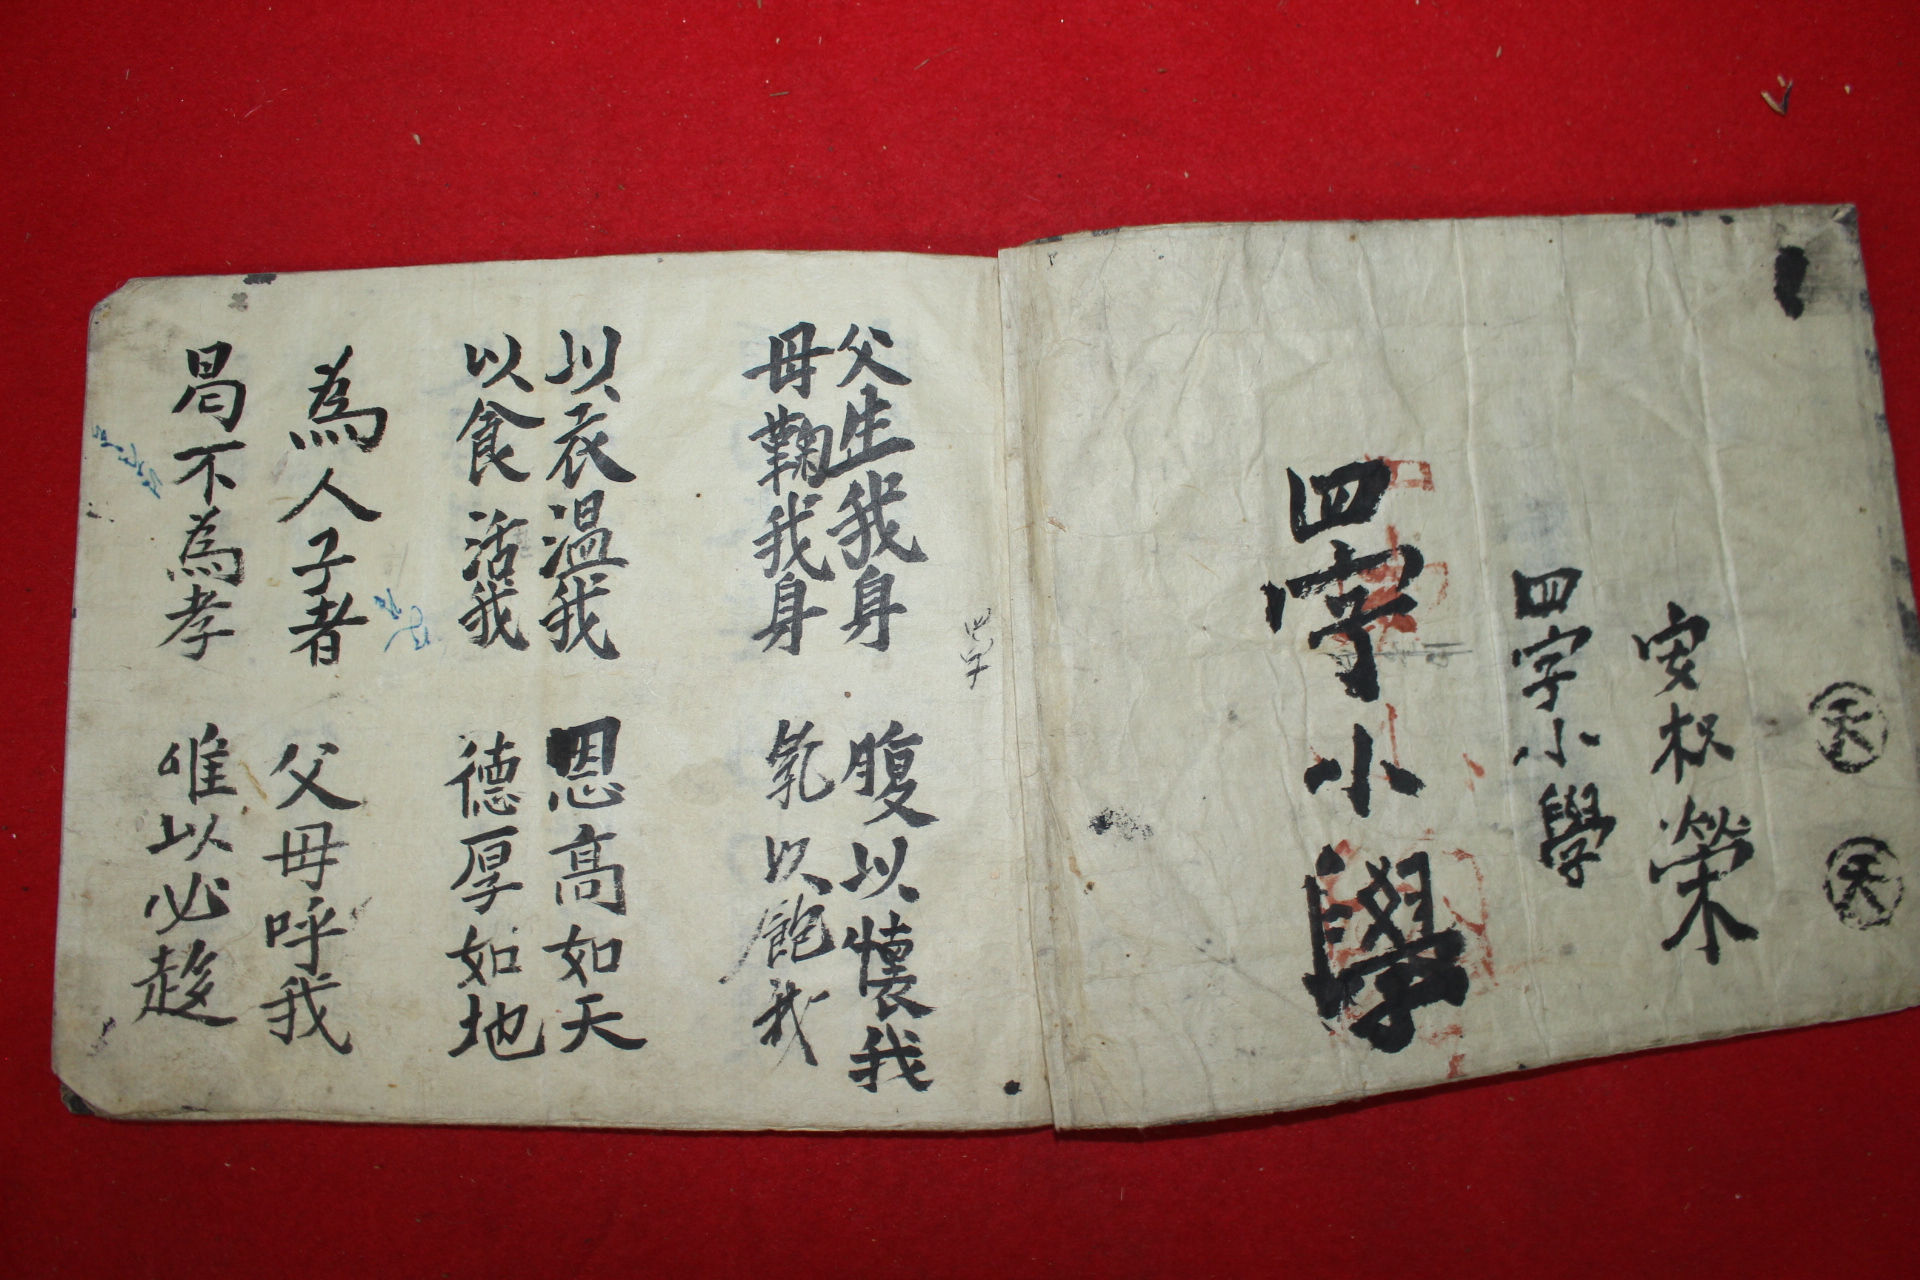 天 天
安松榮
四字小學
四字小學
四字
父生我身 腹以懷我
母鞠我身 乳以飽我
以衣溫我 恩高如天
以食活我 德厚如地
為人子者 父母呼我
曷不為孝 唯以必趍